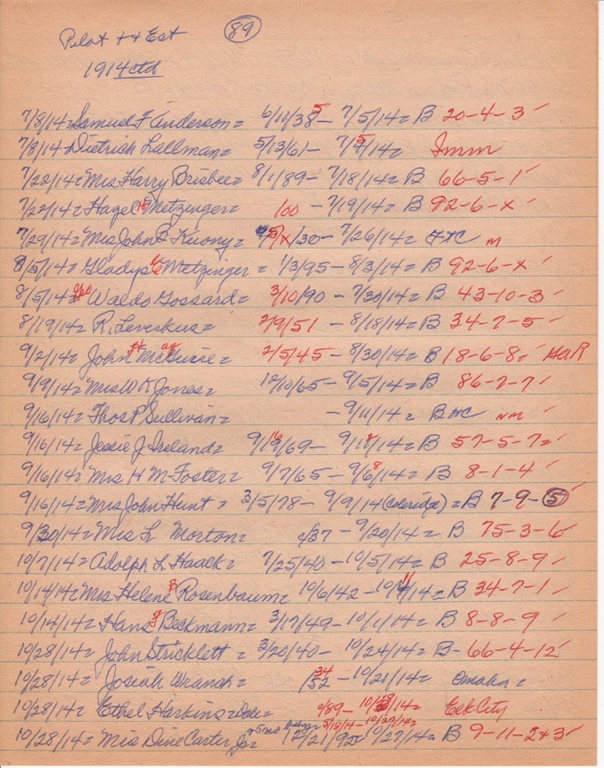 89
Pilot ++ Est
1914 ctd
7/8/14= Samuel F Anderson= 6/11/38 5 - 7/5/14= B 20-4-3 ✓
7/8/14= Dietrich Lallman= 5/13/61- 7/5/14= Imm
7/22/14= Mrs Harry Brisbee= 8/1/89- 7/18/14= B 66-5-1 ✓
7/22/14= Hazel Metzinger= 100 - 7/19/14= B 92-6-x ✓
7/29/14= Mrs John B /30- 7/26/14=
8/5/14= Gladys G Metzinger= 1/3/95- 8/3/14= B 92-6-x ✓
8/5/14= Waldo Gossard= 3/10/90- 7/30/14= B 43-10-3 ✓
8/19/14= R. Leverkus= 2/9/51- 8/18/14= B 34-7-5 ✓
9/2/14= John = 2/5/45- 8/30/14= B 18-6-8= ✓
9/9/14= Mrs W K Jones= 12/10/65- 9/5/14= B 86-7-7 ✓
9/16/14= Thos P Sullivan= - 9/11/14= B
9/16/14= Jessie J Ireland= /69- /14= B 57-5-7= ✓
9/16/14= Mrs H M Foster= 9/7/65- 9/6/14= B 8-1-4 ✓
9/16/14= Mrs John Hunt= 3/5/78- 9/9/14 (Coleridge)= B 7-9-5 ✓
9/30/14= Mrs L Morton= /37- 9/20/14= B 75-3-6 ✓
10/7/14= Adolph L. Haack= 7/25/40- 10/5/14= B 25-8-9 ✓
10/14/14= Mrs Helene Rosenbaum= 10/6/42- /14= B 34-7-1 ✓
10/14/14= Hans Beckmann= 3/17/49- 10/1/14= B 8-8-9 ✓
10/28/14= John Stricklett= 3/20/40- 10/24/14= B- 66-4-12 ✓
10/28/14= Josiah 34 /52- 10/21/14= Omaha=
10/28/14= Ethel Harkins= /89- /14= Elk City
10/28/14= Mrs Dine Carter Jr= 10/27/14= B 9-11-2+3 ✓